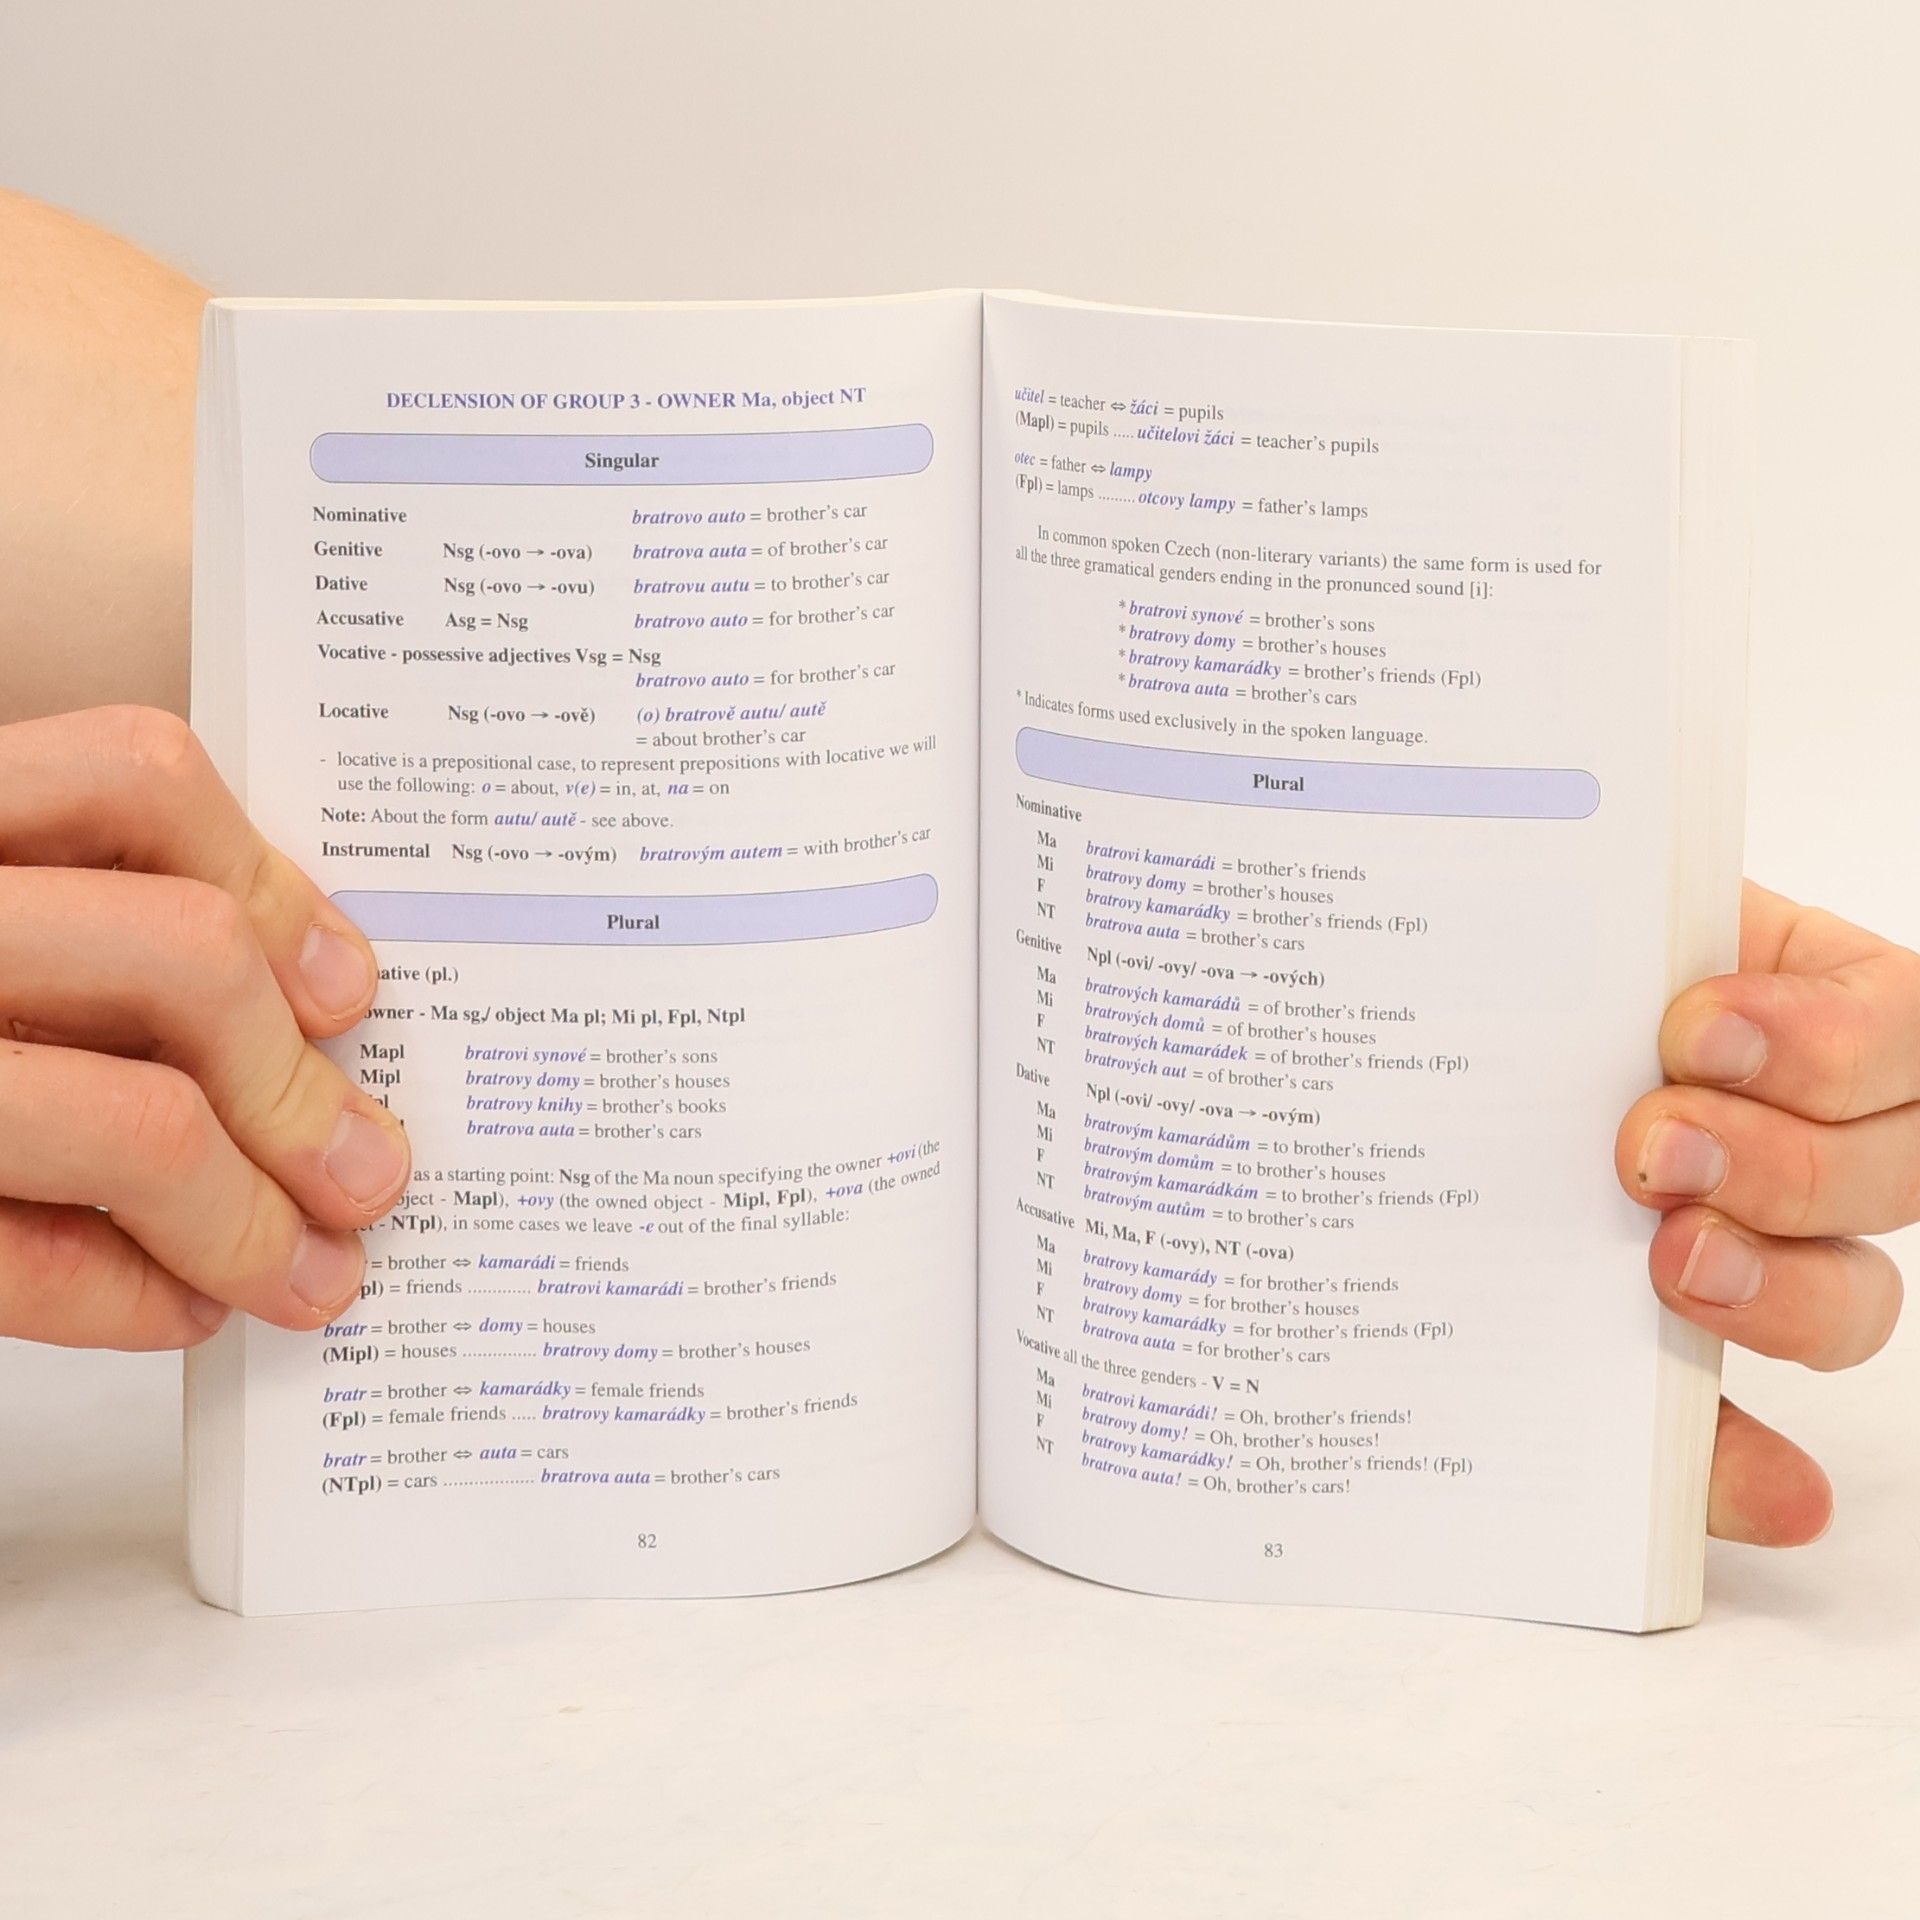 DECLENSION OF GROUP 3 - OWNER Ma, object NT
Singular
Nominative bratrovo auto = brother's car
Genitive Nsg (-ovo → -ova) bratrova auta = of brother's car
Dative Nsg (-ovo → -ovu) bratrovu autu = to brother's car
Accusative Asg = Nsg bratrovo auto = for brother's car
Vocative - possessive adjectives Vsg = Nsg
bratrovo auto = for brother's car
Locative Nsg (-ovo → -ově) (o) bratrově autu/ autě
= about brother's car
- locative is a prepositional case, to represent prepositions with locative we will
use the following: o = about, v(e) = in, at, na = on
Note: About the form autu/ autě - see above.
Instrumental Nsg (-ovo → -ovým) bratrovým autem = with brother's car
Plural
(pl.)
- Ma sg,/ object Ma pl; Mi pl, Fpl, Ntpl
Mapl bratrovi synové = brother's sons
Mipl bratrovy domy = brother's houses
bratrovy knihy = brother's books
bratrova auta = brother's cars
as a starting point: Nsg of the Ma noun specifying the owner +ovi (the
- Mapl), +ovy (the owned object - Mipl, Fpl), +ova (the owned
- NTpl), in some cases we leave -e out of the final syllable:
= brother ⇔ kamarádi = friends
= friends ............. bratrovi kamarádi = brother's friends
bratr = brother ⇔ domy = houses
(Mipl) = houses ............... bratrovy domy = brother's houses
bratr = brother ⇔ kamarádky = female friends
(Fpl) = female friends ..... bratrovy kamarádky = brother's friends
bratr = brother ⇔ auta = cars
(NTpl) = cars ................... bratrova auta = brother's cars
82
učitel = teacher ⇔ žáci = pupils
(Mapl) = pupils ..... učitelovi žáci = teacher's pupils
otec = father ⇔ lampy
(Fpl) = lamps ......... otcovy lampy = father's lamps
In common spoken Czech (non-literary variants) the same form is used for
all the three gramatical genders ending in the pronunced sound [i]:
* bratrovi synové = brother's sons
* bratrovy domy = brother's houses
* bratrovy kamarádky = brother's friends (Fpl)
* bratrova auta = brother's cars
* Indicates forms used exclusively in the spoken language.
Plural
Nominative
Ma bratrovi kamarádi = brother's friends
Mi bratrovy domy = brother's houses
F bratrovy kamarádky = brother's friends (Fpl)
NT bratrova auta = brother's cars
Genitive Npl (-ovi/ -ovy/ -ova → -ových)
Ma bratrových kamarádů = of brother's friends
Mi bratrových domů = of brother's houses
F bratrových kamarádek = of brother's friends (Fpl)
NT bratrových aut = of brother's cars
Dative Npl (-ovi/ -ovy/ -ova → -ovým)
Ma bratrovým kamarádům = to brother's friends
Mi bratrovým domům = to brother's houses
F bratrovým kamarádkám = to brother's friends (Fpl)
NT bratrovým autům = to brother's cars
Accusative Mi, Ma, F (-ovy), NT (-ova)
Ma bratrovy kamarády = for brother's friends
Mi bratrovy domy = for brother's houses
F bratrovy kamarádky = for brother's friends (Fpl)
NT bratrova auta = for brother's cars
Vocative all the three genders - V = N
Ma bratrovi kamarádi! = Oh, brother's friends!
Mi bratrovy domy! = Oh, brother's houses!
F bratrovy kamarádky! = Oh, brother's friends! (Fpl)
NT bratrova auta! = Oh, brother's cars!
83